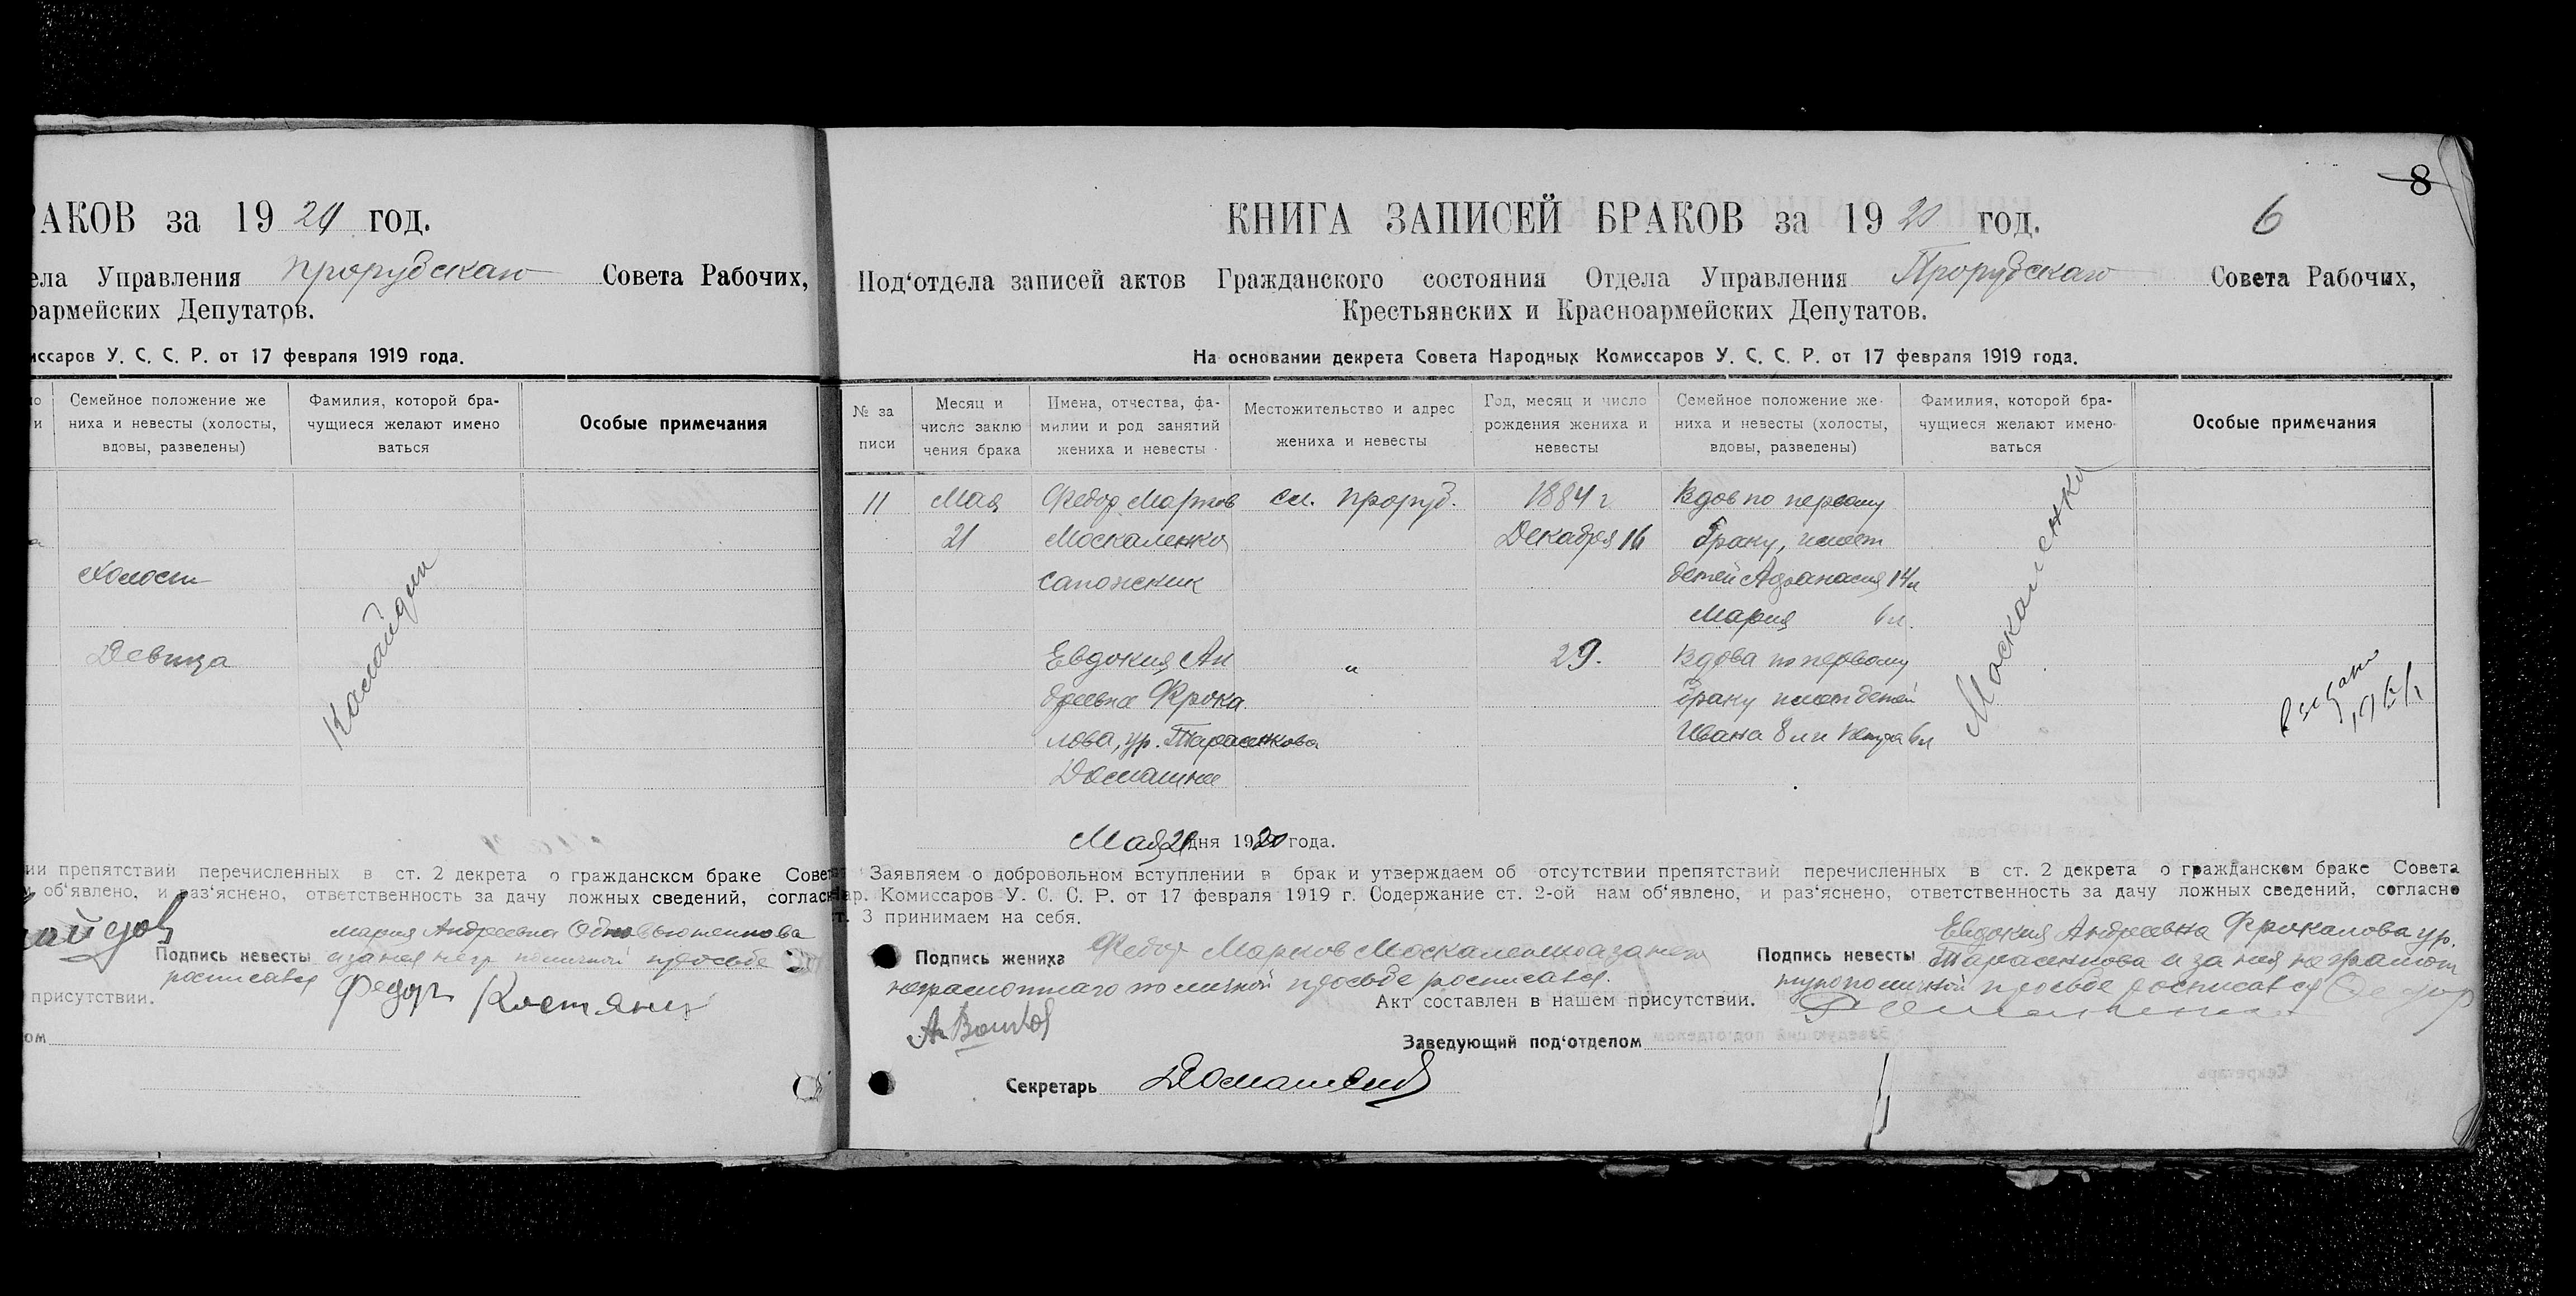 РАКОВ за 19 21 год.
ела Управления Прорубскаго Совета Рабочих,
оармейских Депутатов.
иссаров У. С. С. Р. от 17 февраля 1919 года.
Семейное положение же
ниха и невесты (холосты,
вдовы, разведены)
Фамилия, которой бра-
чущиеся желают имено
ваться
Особые примечания
Холост
Девица
ии препятствий перечисленных в ст. 2 декрета о гражданском браке Совета
об‘явлено, и раз‘яснено, ответственность за дачу ложных сведений, согласно
Мария Андреевна
Подпись невесты а за нея негр по личной просьбе
росписался Федор Костяни
присутствии.
ом
8
КНИГА ЗАПИСЕЙ БРАКОВ за 19 20 год.
6
Под‘отдела записей актов Гражданского состояния Отдела Управления Прорубскаго Совета Рабочих,
Крестьянских и Красноармейских Депутатов.
На основании декрета Совета Народных Комиссаров У. С. С. Р. от 17 февраля 1919 года.
№ за
писи
Месяц и
число заклю
чения брака
Имена, отчества, фа-
милии и род занятий
жениха и невесты
Местожительство и адрес
жениха и невесты
Год, месяц и число
рождения жениха и
невесты
Семейное положение же-
ниха и невесты (холосты,
вдовы, разведены)
Фамилия, которой бра-
чущиеся желают имено-
ваться
Особые примечания
11 Мая Федор Марков сл. Проруб. 1884 г Вдов по первому
21 Москаленко Декабря 16 браку, имеет
сапожник детей Афанасия 14 л
Мария 6 л.
Москаленко
Евдокия Ан " 29. Вдова по первому
дреевна Фрока браку имеет детей
лова, ур. Тарасенкова Ивана 8 л и Петра 6 л
Домашнее
Мая 21 дня 1920 года.
Заявляем о добровольном вступлении в брак и утверждаем об отсутствии препятствий перечисленных в ст. 2 декрета о гражданском браке Совета
Нар. Комиссаров У. С. С. Р. от 17 февраля 1919 г. Содержание ст. 2-ой нам об‘явлено, и раз‘яснено, ответственность за дачу ложных сведений, согласно
ст. 3 принимаем на себя.
Подпись жениха Федор Марков Москаленко а за него
неграмотнаго по личной просьбе росписался.
Евдокия Андреевна Фрокалова ур.
Подпись невесты Тарасенкова а за нея неграмот
ную по личной просьбе росписался Федор
Акт составлен в нашем присутствии.
Заведующий под‘отделом
Секретарь